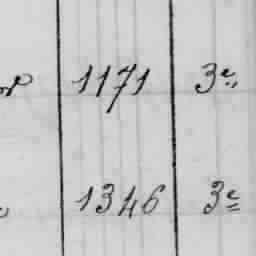 1171 3e
1346 3e